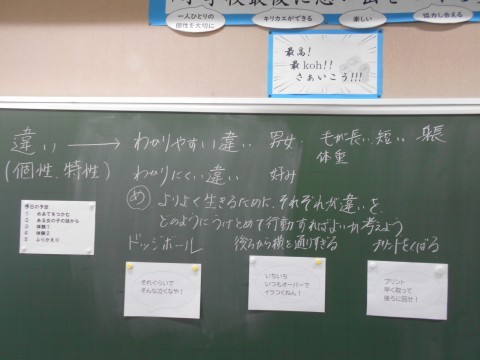 小学校最後に思い出を
一人ひとりの
個性を大切に
キリカエができる
楽しい
協力し合える
最高!
最koh!!
さぁいこう!!!
違い → わかりやすい違い 男女 毛が長い、短い
体重
(個性、特性) わかりにくい違い 好み
め よりよく生きるために、それぞれが違いを、
どのようにうけとめて行動すればよいか考えよう
ドッジボール 後ろから横を通りすぎる プリントをくばる
今日の予定
① めあてをつかむ
② ある女の子の話から
③ 体験1
④ 体験2
⑤ ふりかえり
それぐらいで
そんな泣くなや!
いちいち
いつもオーバーで
イラつくねん!
プリント
早く取って
後ろに回せ!